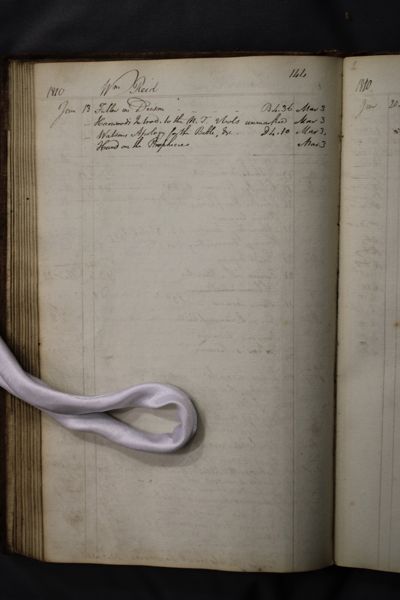 144
1810 Wm Reid
Jan 13 Fuller on Deism B4.36 Mar 3
— Harwood's Introd. to the N. T. 2 vols unmarked Mar 3
— Watsons Apology for the Bible, &c. D4.10 Mar 3
Hurd on the Prophecies Mar 3
1810
Jan 20